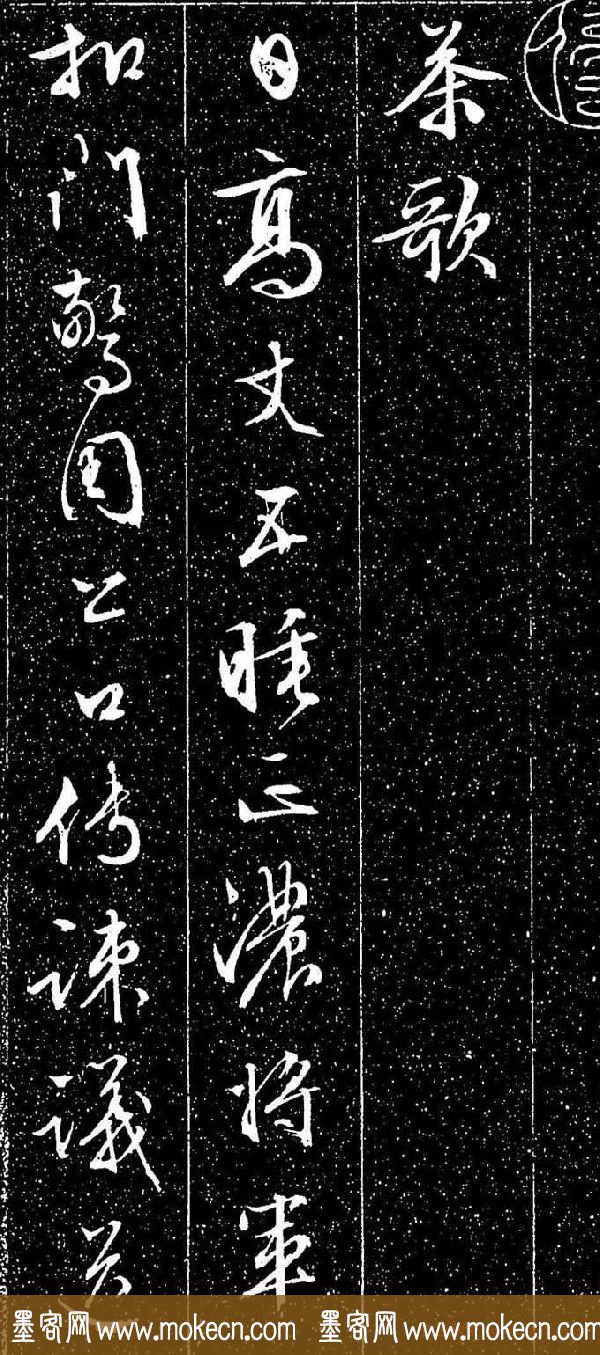 茶歌
日高丈五睡正濃將軍
扣門驚周公口傳諫議
墨客网 www.mokecn.com 墨客网 www.mokecn.com